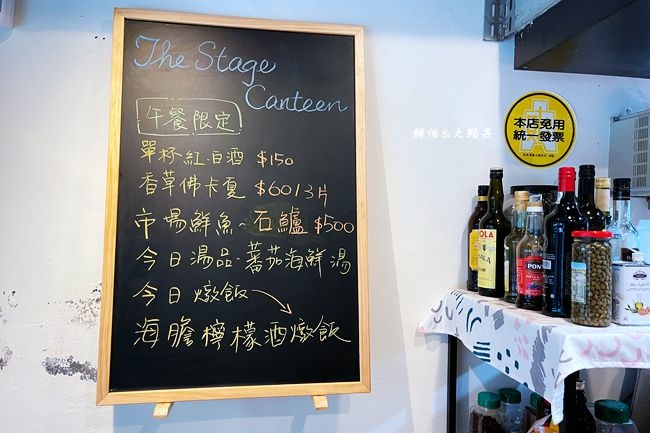 The Stage
Canteen
午餐限定
單杯紅.白酒 $150
香草佛卡夏 $60/3片
市場鮮魚-石鱸 $500
今日湯品.蕃茄海鮮湯
今日燉飯
海膽檸檬酒燉飯
本店免用
統一發票
PON